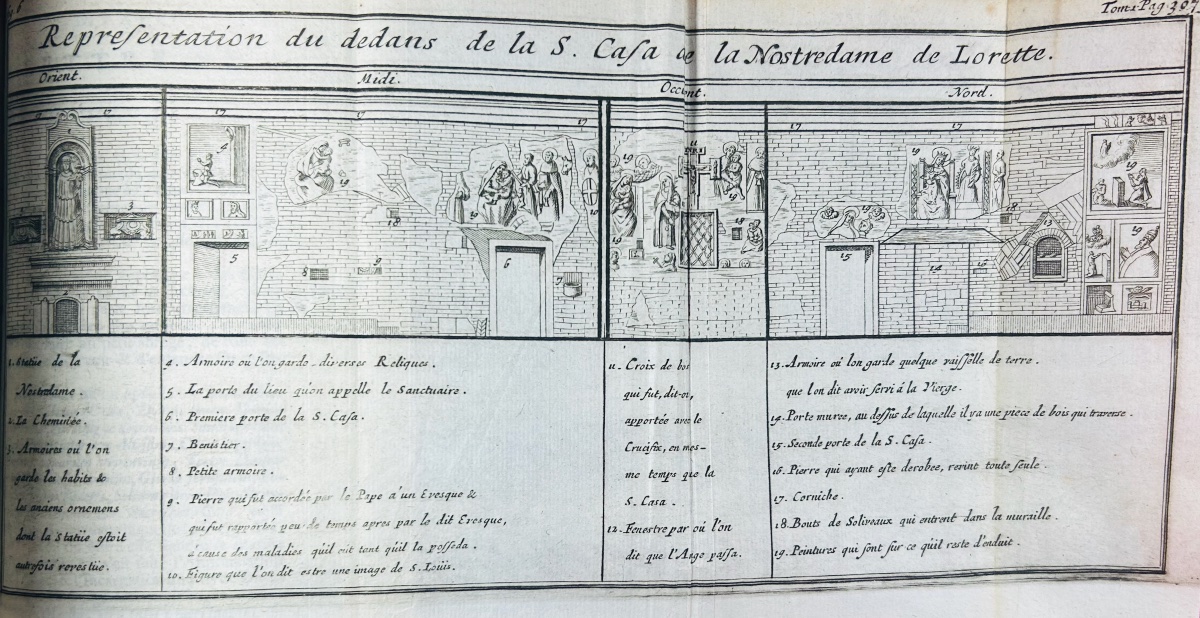 Tom 1. Pag 307.
Representation du dedans de la S. Casa de la Nostredame de Lorette.
Orient.
Midi.
Occident.
Nord.
1. Statüe de la
Nostredame.
2. La Cheminée.
3. Armoires où l'on
garde les habits &
les anciens ornemens
dont la Statüe estoit
autrefois revestüe.
4. Armoire où l'on garde diverses Reliques.
5. La porte du lieu qu'on appelle le Sanctuaire.
6. Premiere porte de la S. Casa.
7. Benistier.
8. Petite armoire.
9. Pierre qui fut accordée par le Pape a'un Evesque &
qui fut rapportée peu de temps apres par le dit Evesque,
a'cause des maladies qu'il eut tant qu'il la posseda.
10. Figure que l'on dit estre une image de S. Loüis.
11. Croix de bois
qui fut, dit-on,
apportée avec le
Crucifix, en mes-
me temps que la
S. Casa.
12. Fenestre par où l'on
dit que l'Ange passa.
13. Armoire où l'on garde quelque vaisselle de terre.
que l'on dit avoir servi á la Vierge.
14. Porte murée, au dessus de laquelle il y a une piece de bois qui traverse.
15. Seconde porte de la S. Casa.
16. Pierre qui ayant esté derobée, revint toute seule.
17. Corniche.
18. Bouts de Soliveaux qui entrent dans la muraille.
19. Peintures qui sont sur ce qu'il reste d'enduit.